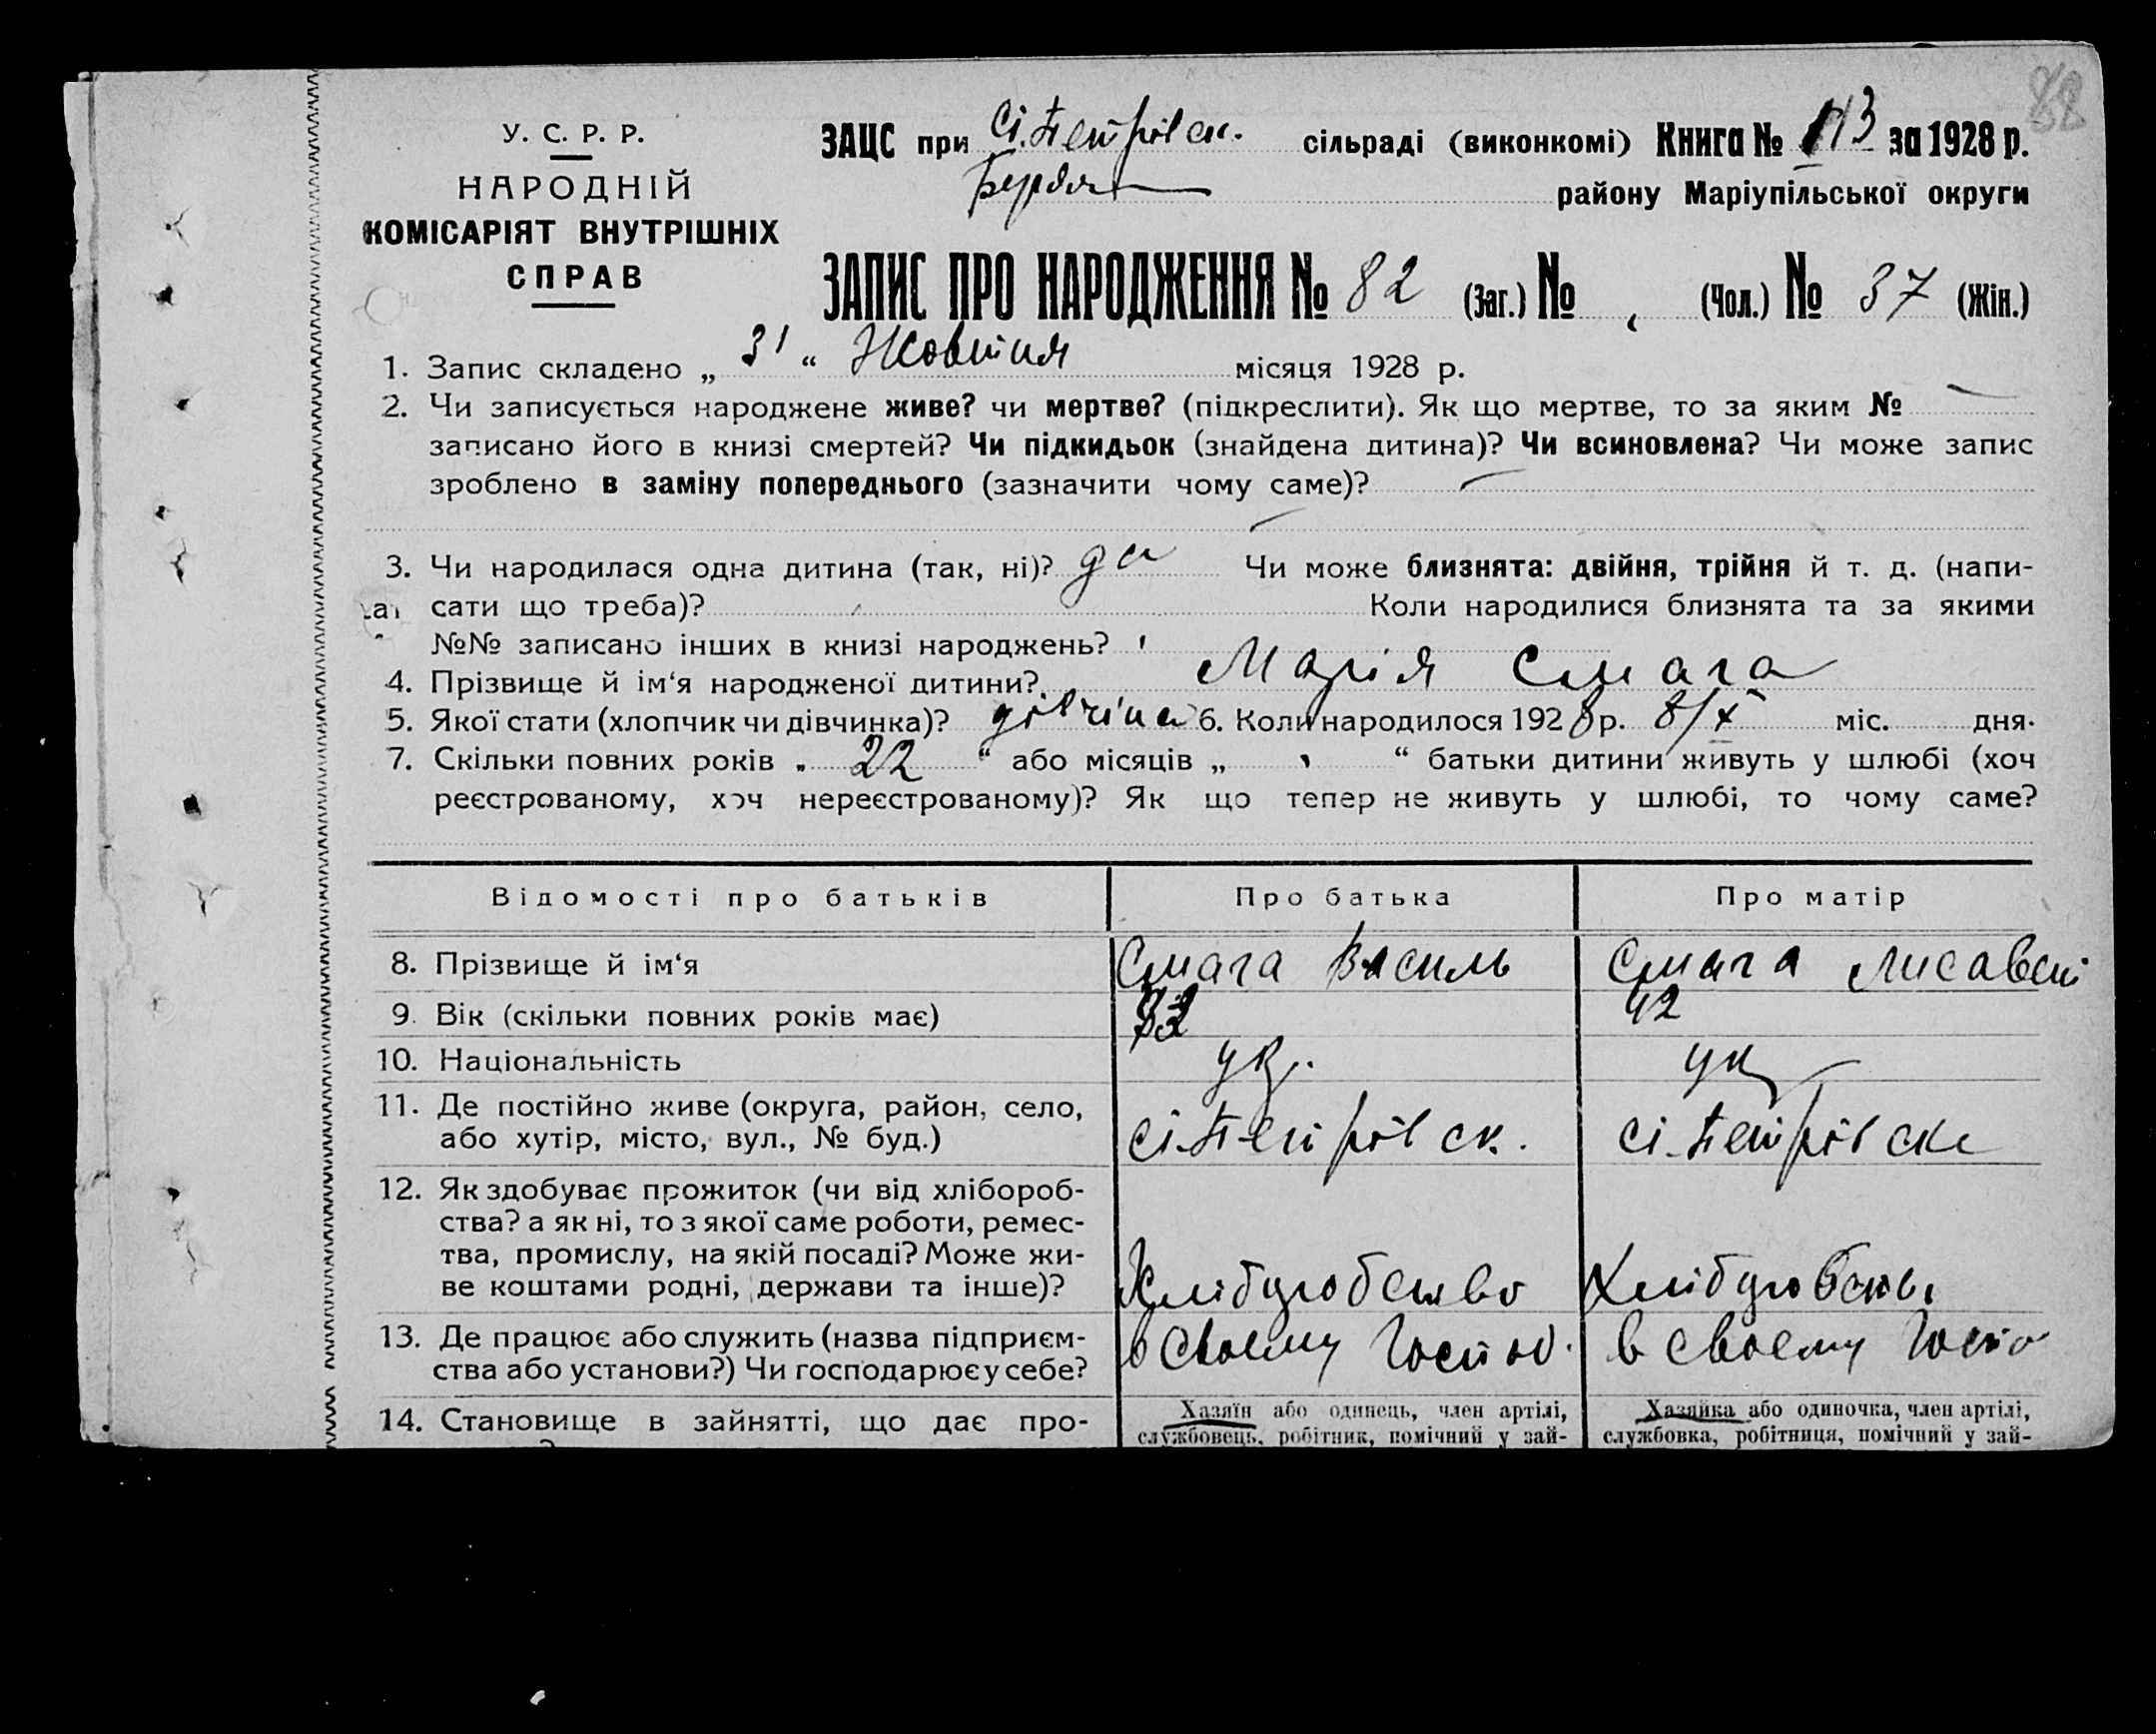 88
У. С. Р. Р.
НАРОДНІЙ
КОМІСАРІЯТ ВНУТРІШНІХ
СПРАВ
ЗАЦС при Ст. Петрівск. сільраді (виконкомі) Книга № 113 за 1928 р.
району Маріупільської округи
ЗАПИС ПРО НАРОДЖЕННЯ № 82 (Заг.) № (Чол.) № 37 (Жін.)
1. Запис складено „ 31 “ Жовтня місяця 1928 р.
2. Чи записується народжене живе? чи мертве? (підкреслити). Як що мертве, то за яким №
записано його в книзі смертей? Чи підкидьок (знайдена дитина)? Чи всиновлена? Чи може запис
зроблено в заміну попереднього (зазначити чому саме)?
3. Чи народилася одна дитина (так, ні)? да Чи може близнята: двійня, трійня й т. д. (напи-
сати що треба)? Коли народилися близнята та за якими
№№ записано інших в книзі народжень?
4. Прізвище й ім‘я народженої дитини? Марія Смага
5. Якої стати (хлопчик чи дівчинка)? дівчина 6. Коли народилося 1928 р. 8/X міс. дня.
7. Скільки повних років „ 22 “ або місяців „ “ батьки дитини живуть у шлюбі (хоч
реєстрованому, хоч нереєстрованому)? Як що тепер не живуть у шлюбі, то чому саме?
Відомості про батьків Про батька Про матір
8. Прізвище й ім‘я Смага Василь Смага Лисавет
9. Вік (скільки повних років має) 42
10. Національність укр. ук
11. Де постійно живе (округа, район, село,
або хутір, місто, вул., № буд.) ст. Петрівск. ст. Петрівске
12. Як здобуває прожиток (чи від хлібороб-
ства? а як ні, то з якої саме роботи, ремес-
тва, промислу, на якій посаді? Може жи-
ве коштами родні, держави та інше)? Хліборобство Хліборобство
13. Де працює або служить (назва підприєм-
ства або установи?) Чи господарює у себе? в своему Госпо. в своему Госпо
14. Становище в зайнятті, що дає про- Хазяїн або одинець, член артілі, Хазяйка або одиночка, член артілі,
службовець, робітник, помічний у зай- службовка, робітниця, помічний у зай-